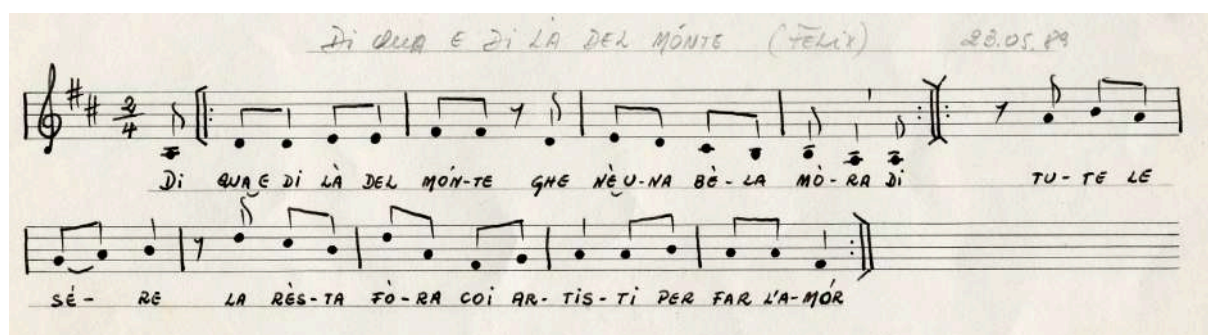 Di QUA E Di LÀ DEL MÓNTE (FELiX) 23.05.89
2
4
Di QUA E Di LÀ DEL MÓN-TE GHE NÈ U-NA BÈ-LA MÒ-RA Di TU-TE LE
SÉ- RE LA RÈS-TA FÒ-RA COi AR-TiS-Ti PER FAR L'A-MÓR